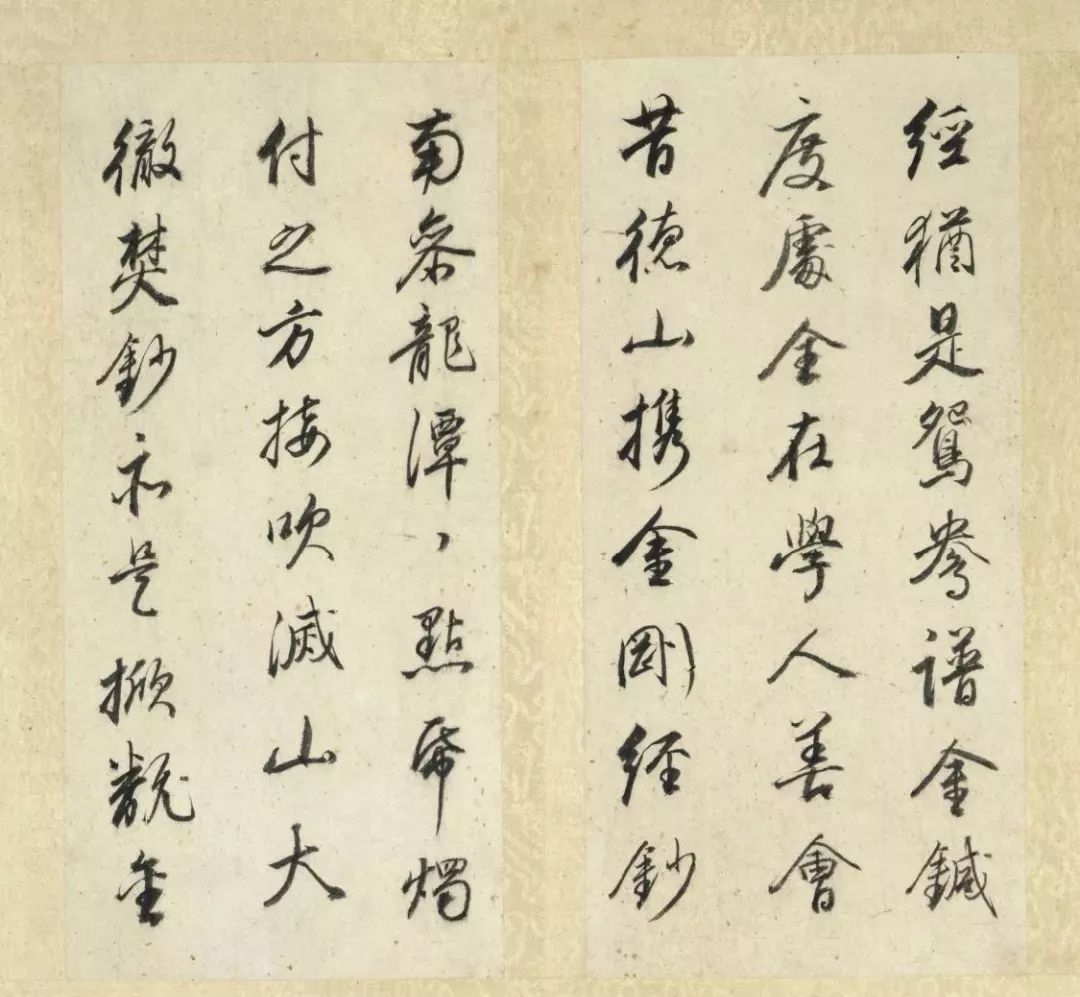 經猶是鴛鴦譜金鍼
度處全在學人善會
昔德山携金剛經鈔
南参龍潭、點帋燭
付之方接吹滅山大
徹焚鈔亦是掀飜金